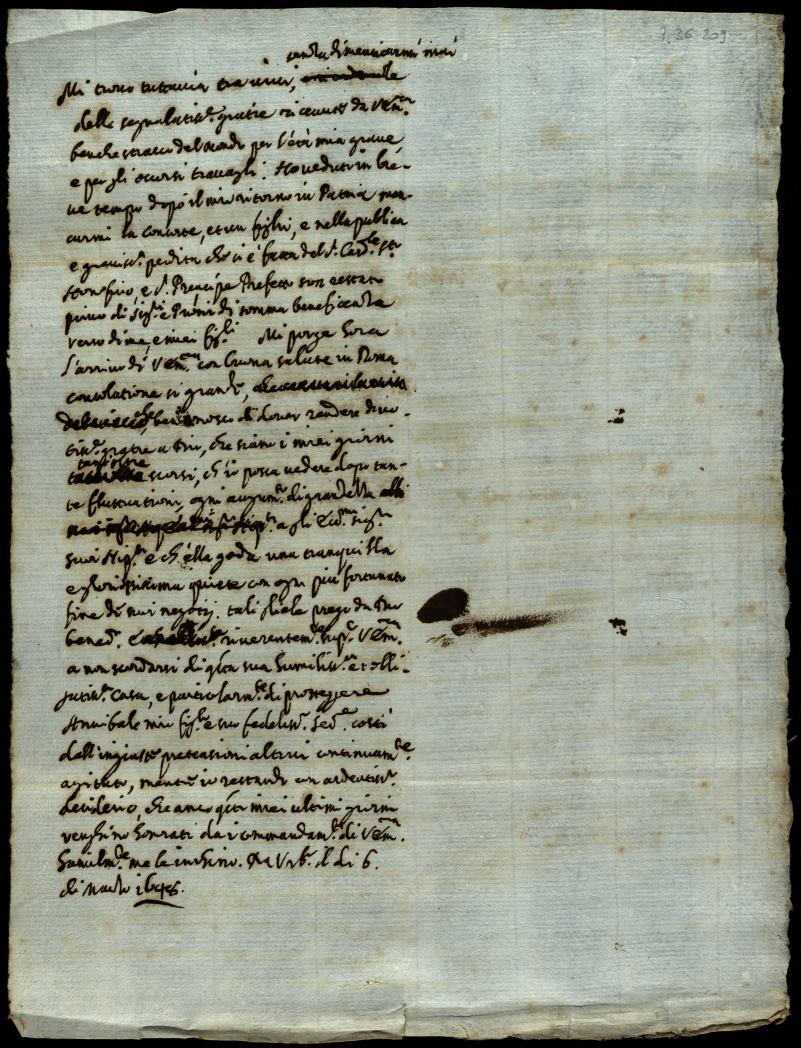 7.36 209
senza dimenticarmi mai
Mi trovo tuttavia tra vivi,
delle segnalatiss.e gratie ricevute da V Em.a
benche stracco del Mondo per l'età mia grave,
e per gli occorsi travagli. Ho veduti in bre-
ve tempo dopò il mio ritorno in Patria man-
carmi la consorte, et un figlio, e nella publica
e graviss.a perdita che si è fatta del S.r Card.le S.to
Honofrio, e S.r Prencipe Prefetto son restato
privo di Sig.ri e Pròni di somma beneficenza
verso di me, e miei fig.li Mi porge hora
l'arrivo di V Em.a con buona salute in Roma
consolatione si grande,
ben conosco di dover rendere divo-
tiss.e gratie a Dio, che siano i miei giorni
tant'oltre
scorsi, ch'io possa vedere dopo tan-
te fluttuationi, ogni augum.to di grandezza
a gli Ecc.mi Sig.ri
suoi Nip.ti e ch'ella goda una tranquilla
e gloriosissima quiete con ogni più fortunato
fine de suoi negotij. tali gliele prego da Dio
bened.o riverentem.te sup.co V Em.a
a non scordarsi di q.sta sua humiliss.a et obli-
gatiss.a Casa, e particolarm.te di proteggere
Annibale mio fig.lo e suo fedeliss.o Ser.e costì
dall'ingiuste pretensioni altrui continuam.te
agitato, mentre io restando con ardentiss.o
desiderio, che anco q.sti miei ultimi giorni
venghino honorati da i commandam.ti di V Em.a
humilm.te me le inchino. Da Urb.o il dì 6.
di Marzo